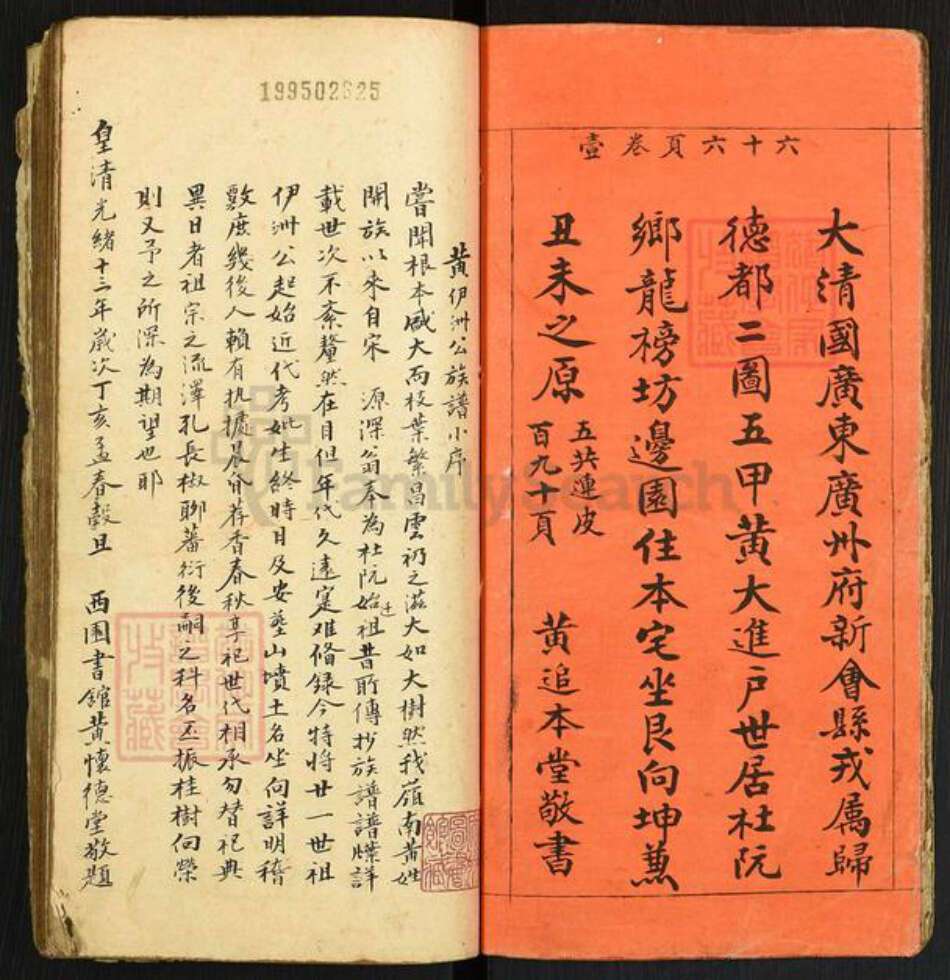 六十六頁卷壹
大清國廣東廣州府新會縣戎属歸
德都二圖五甲黃大進戶世居杜阮
鄉龍榜坊邊園住本宅坐艮向坤兼
丑未之原
五共連皮
百九十頁
黃追本堂敬書
199502825
黃伊洲公族譜小序
嘗聞根本盛大而枝葉繁昌雲礽之滋大如大樹然我嶺南黃姓
開族以來自宋 源深翁奉為杜阮始迁祖昔所傳抄族譜譜牒詳
載世次不紊釐然在目但年代久遠寔难俻録今特將廿一世祖
伊洲公起始近代考妣生終時日及安塟山墳土名坐向詳明稽
敷庶幾後人賴有执據晨昏荐香春秋享祀世代相承勿替祀典
異日者祖宗之流澤孔長椒聊蕃衍後嗣之科名丕振桂樹向榮
則又予之所深為期望也耶
皇清光緒十三年歲次丁亥孟春穀旦 西園書館黃懷德堂敬題
FamilySearch